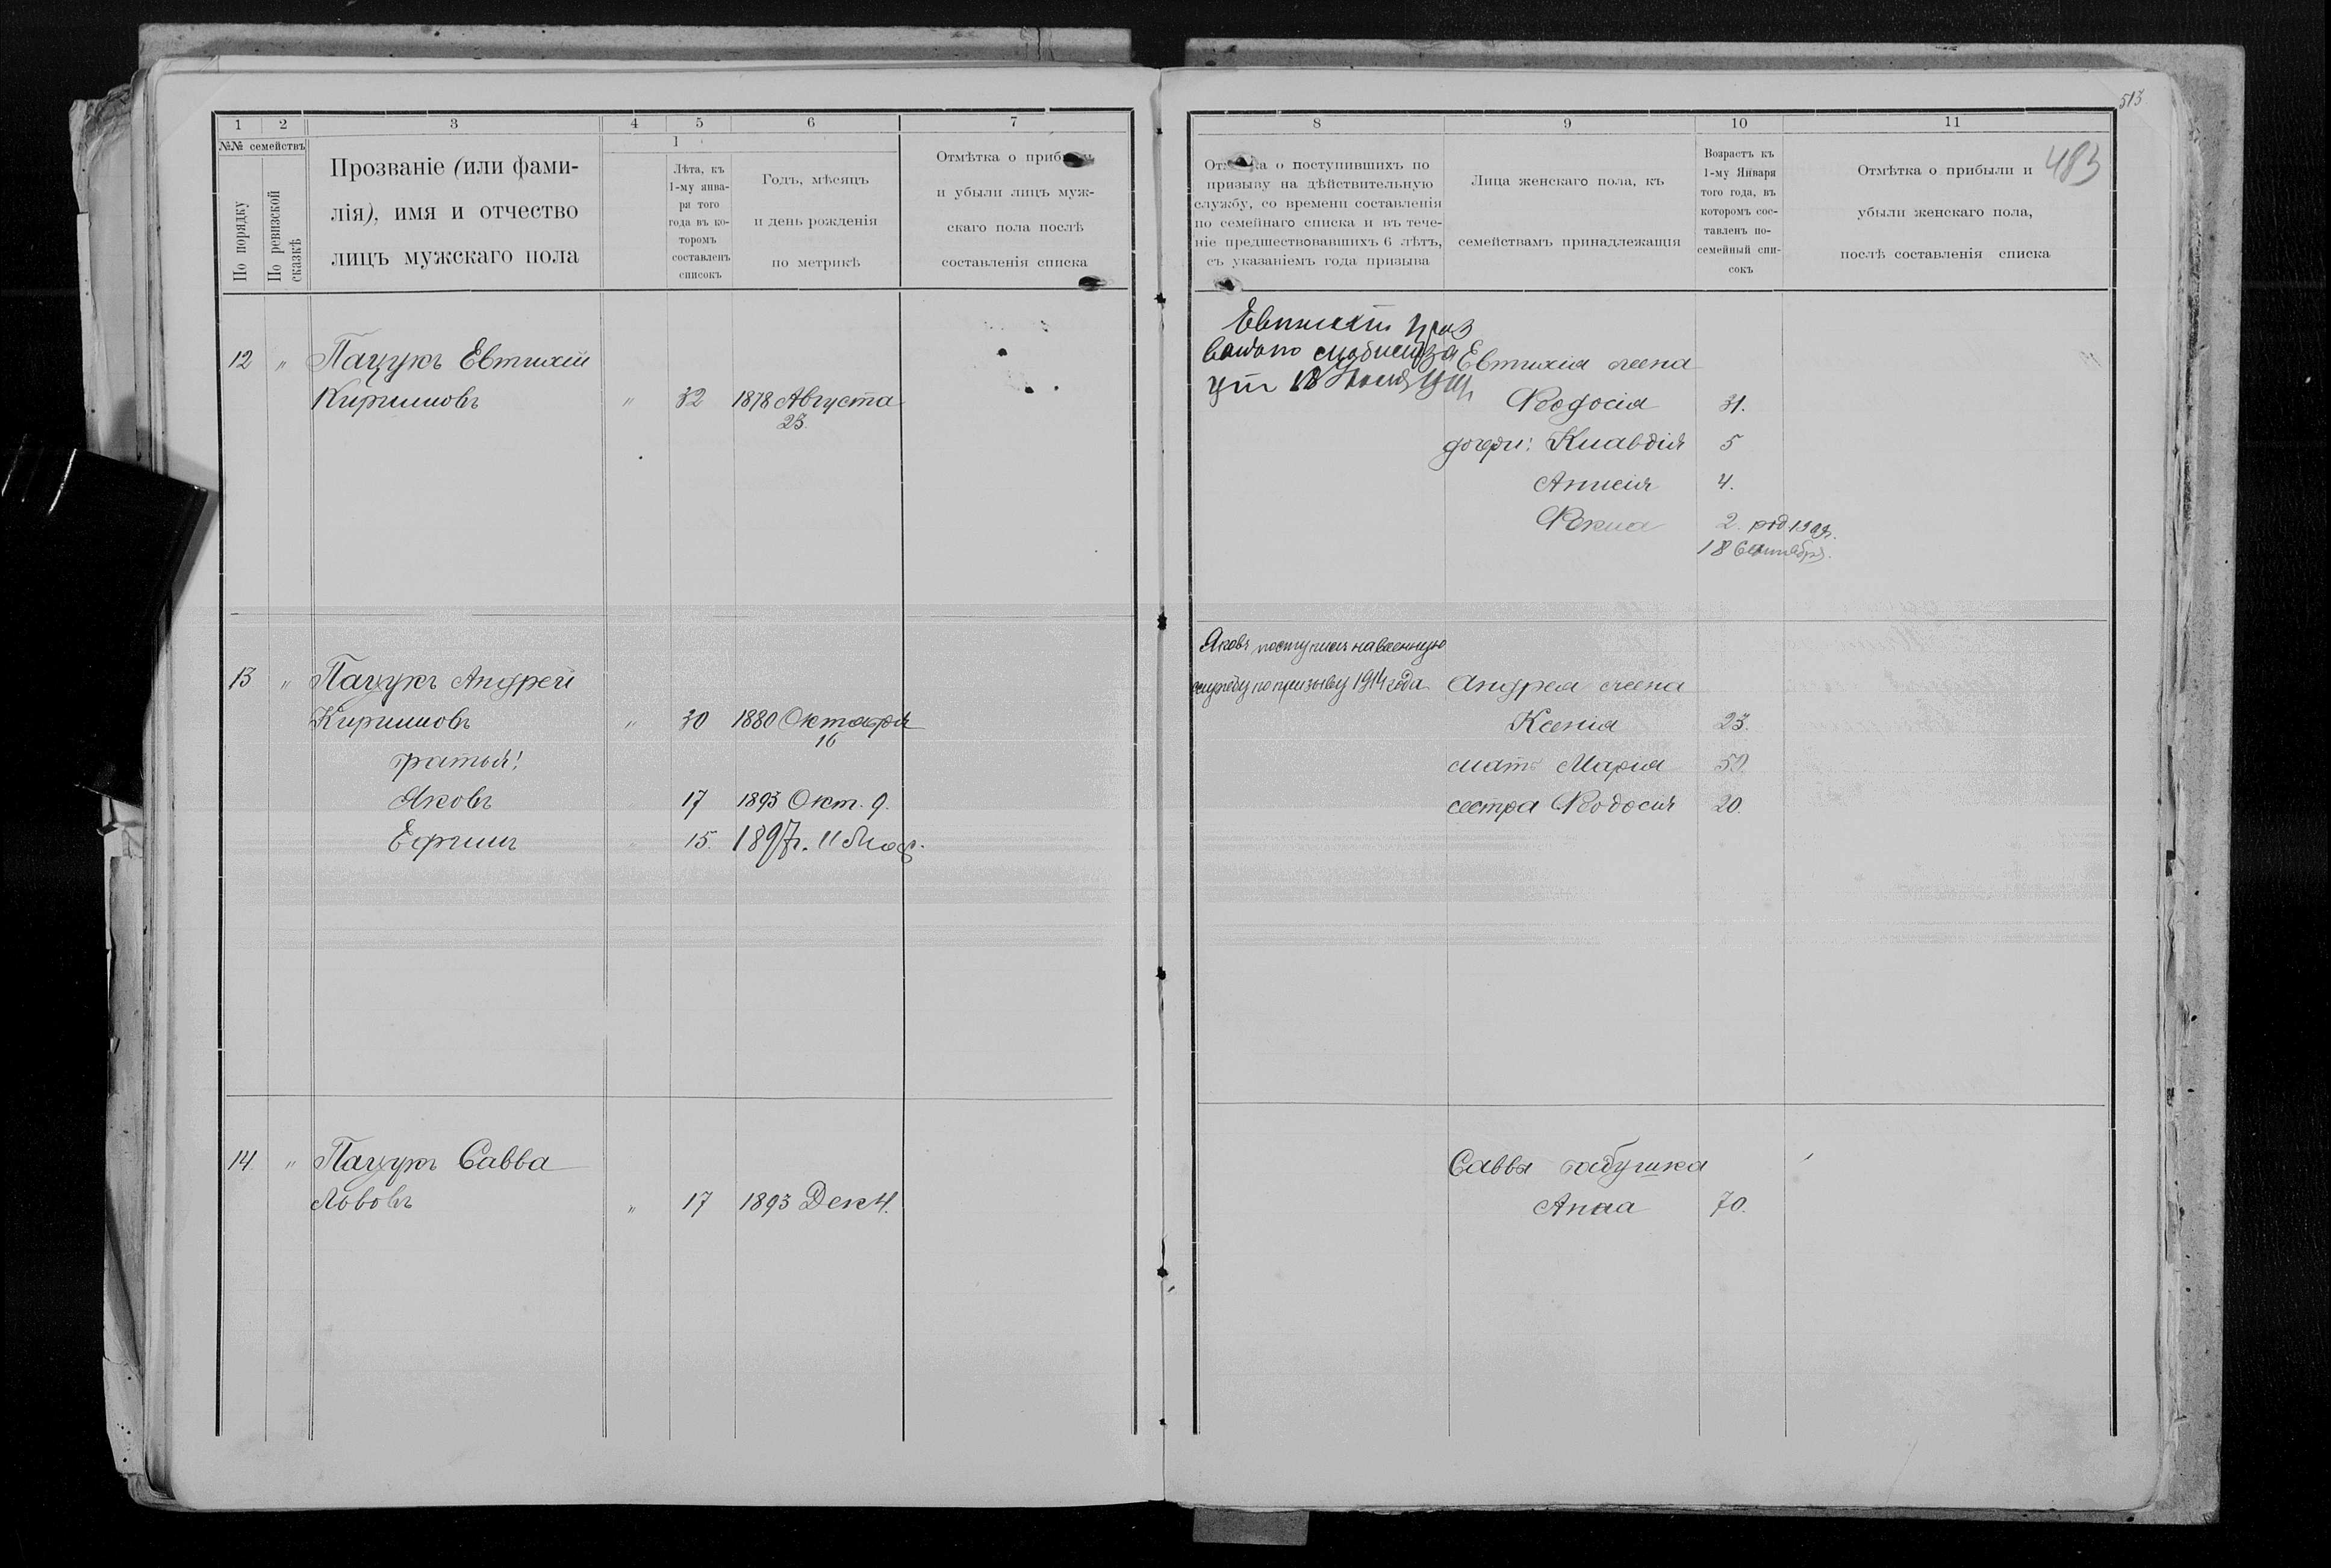 513
483
1 2 3 4 5 6 7
№№ семействъ
По порядку
По ревизской сказкѣ
Прозваніе (или фами-
лія), имя и отчество
лицъ мужскаго пола
1
Лѣта, къ
1-му янва-
ря того
года въ ко-
торомъ
составленъ
списокъ
Годъ, мѣсяцъ
и день рожденія
по метрикѣ
Отмѣтка о прибыли
и убыли лицъ муж-
скаго пола послѣ
составленія списка
12 „ Пацукъ Евтихій
Кирилловъ „ 32 1878 Августа
23.
13 „ Пацукъ Андрей
Кирилловъ „ 30 1880 Октября
16
братья:
Яковъ 17 1893 Окт. 9.
Ефимъ „ 15. 1897г. 11
14. „ Пацукъ Савва
Львовъ „ 17 1893 Дек 4.
8 9 10 11
Отмѣтка о поступившихъ по
призыву на дѣйствительную
службу, со времени составленія
по семейнаго списка и въ тече-
ніе предшествовавшихъ 6 лѣтъ,
съ указаніемъ года призыва
Лица женскаго пола, къ
семействамъ принадлежащія
Возрастъ къ
1-му Января
того года, въ
которомъ сос-
тавленъ по-
семейный спи-
сокъ
Отмѣтка о прибыли и
убыли женскаго пола,
послѣ составленія списка
Евтихія жена
Ѳеодосія 31.
дочери: Клавдія 5
Анисія 4.
Ѳекла 2. род. 1909г.
18 Сентября.
Яковъ поступилъ на военную
службу по призыву 1914 года Андрея жена
Ксенія 23.
мать Марія 59.
сестра Ѳеодосія 20.
Саввы бабушка
Анна 70.